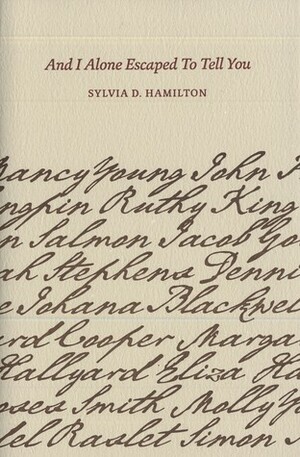 And I Alone Escaped To Tell You
SYLVIA D. HAMILTON
Nancy Young John
Ruthy King
Salmon Jacob
Stephens
Johana Blackwell
Cooper
Hallyard Eliza
Moses Smith Molly
Raslet Simon